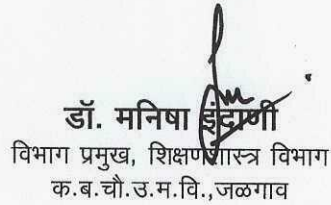 डॉ. मनिषा इंदाणी
विभाग प्रमुख, शिक्षणशास्त्र विभाग
क.ब.चौ.उ.म.वि.,जळगाव